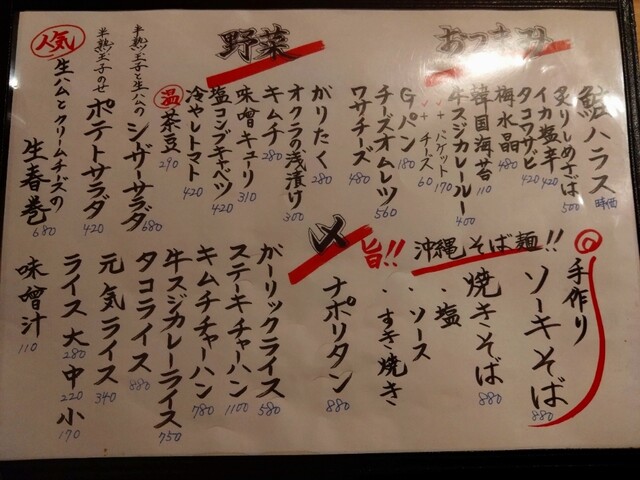 おつまみ
鮭ハラス 時価
炙りしめさば 500
イカ塩辛 420
タコワサビ 420
梅水晶 480
韓国海苔 110
牛スジカレールー 400
〃 + バケット 170
〃 + チーズ 60
Gパン 180
チーズオムレツ 560
ワサチーズ 480
野菜
がりたく 280
オクラの浅漬け 300
キムチ 280
味噌キュリ 310
塩コンブキャベツ 420
冷やしトマト 420
温 茶豆 290
半熟玉子と生ハムの
シーザーサラダ 680
半熟玉子のせ
ポテトサラダ 420
人気 生ハムとクリームチーズの
生春巻 680
手作り
ソーキそば 880
旨!! 沖縄そば麺!!
焼きそば 880
、、塩
、、ソース
、、すき焼き
〆
ナポリタン 880
ガーリックライス 580
ステーキチャーハン 1100
キムチチャーハン 780
牛スジカレーライス 750
タコライス 880
元気ライス 340
ライス 大 280 中 220 小 170
味噌汁 110